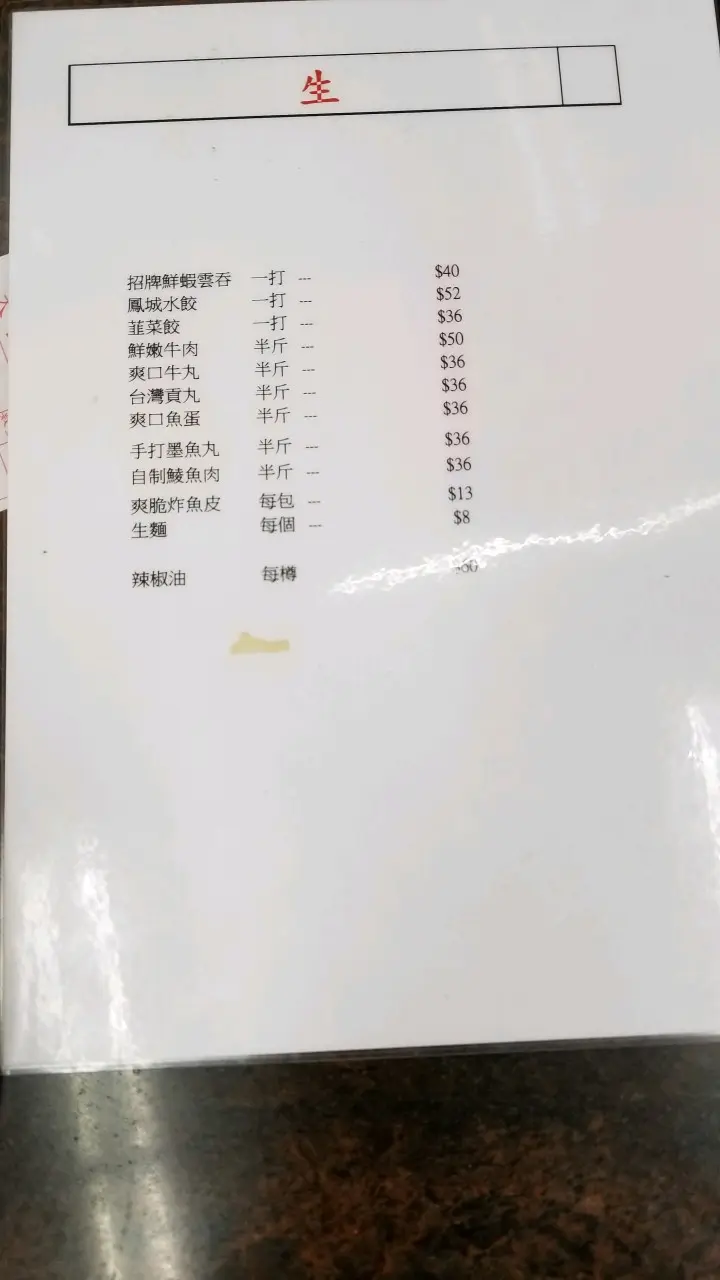 生
招牌鮮蝦雲吞 一打 --- $40
鳳城水餃 一打 --- $52
韮菜餃 一打 --- $36
鮮嫩牛肉 半斤 --- $50
爽口牛丸 半斤 --- $36
台灣貢丸 半斤 --- $36
爽口魚蛋 半斤 --- $36
手打墨魚丸 半斤 --- $36
自制鯪魚肉 半斤 --- $36
爽脆炸魚皮 每包 --- $13
生麵 每個 --- $8
辣椒油 每樽